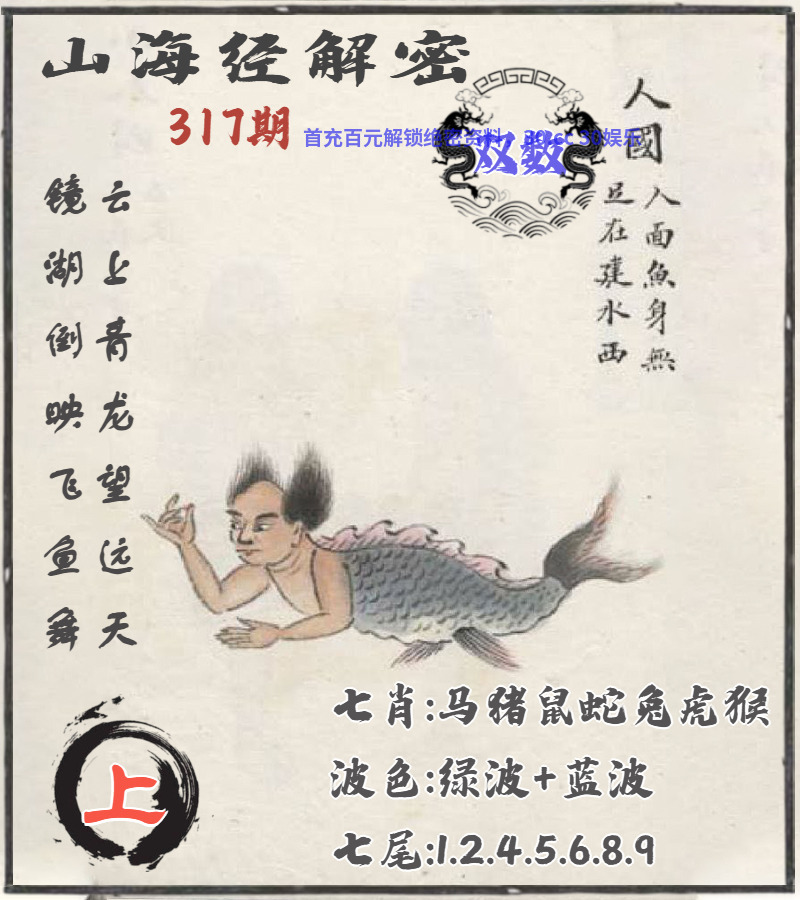 山海经解密
317期
首充百元解锁绝密资料，30.cc 30娱乐
双数
人國
人面魚身無
足在建水西
云上青龙望远天
镜湖倒映飞鱼舞
七肖:马猪鼠蛇兔虎猴
波色:绿波+蓝波
七尾:1.2.4.5.6.8.9
上